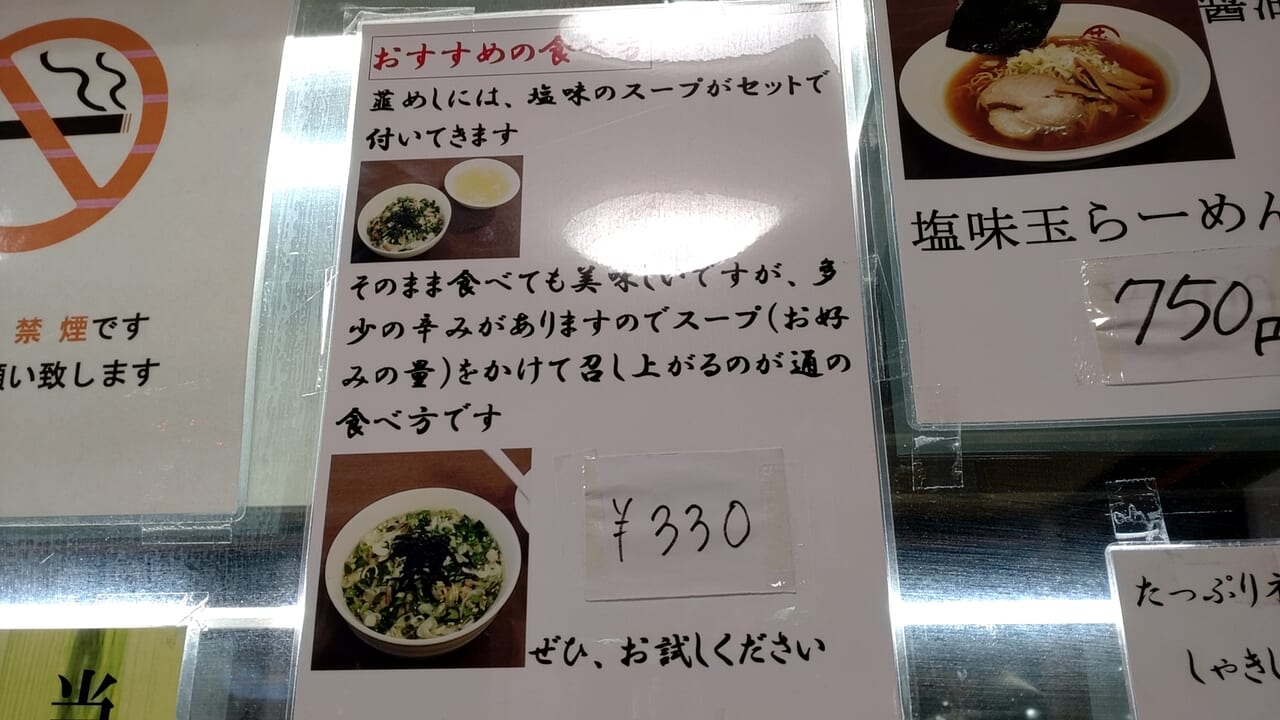 禁煙です
い致します
当
おすすめの食べ
韮めしには、塩味のスープがセットで
付いてきます
そのまま食べても美味しいですが、多
少の辛みがありますのでスープ(お好
みの量)をかけて召し上がるのが通の
食べ方です
¥330
ぜひ、お試しください
醤油
塩味玉らーめん
750円
たっぷりネ
しゃきし